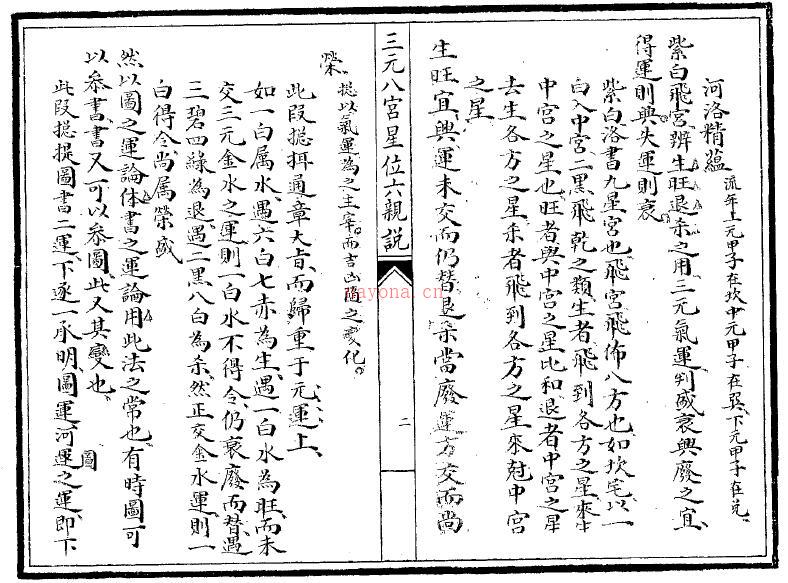 河洛精蘊 流年上元甲子在坎中元甲子在巽下元甲子在兌
紫白飛宮辨生旺退杀之用三元氣運判盛衰興廢之宜
得運則興失運則衰
紫白洛書九星宮也飛宮飛佈八方也如坎宅以一
白入中宮二黑飛乾之類生者飛到各方之星來生
中宮之星也旺者與中宮之星比和退者中宮之星
去生各方之星杀者飛到各方之星來尅中宮
之星
生旺宜興運未交而仍替退杀當廢運方交而尚
三元八宮星位六親説
二
榮 提以氣運為之主宰而吉凶隨之变化
此段捴揖通章大旨而歸重于元運上
如一白属水遇六白七赤為生遇一白水為旺而未
交三元金水之運則一白水不得令仍衰廢而替遇
三碧四緑為退遇二黑八白為杀然正交金水運則一
白得令尚属榮盛
然以圖之運論体書之運論用此法之常也有時圖可
以叅書書又可以叅圖此又其變也
圖
此段捴提圖書二運下逐一承明圖運河運之運即下
nayona.cn